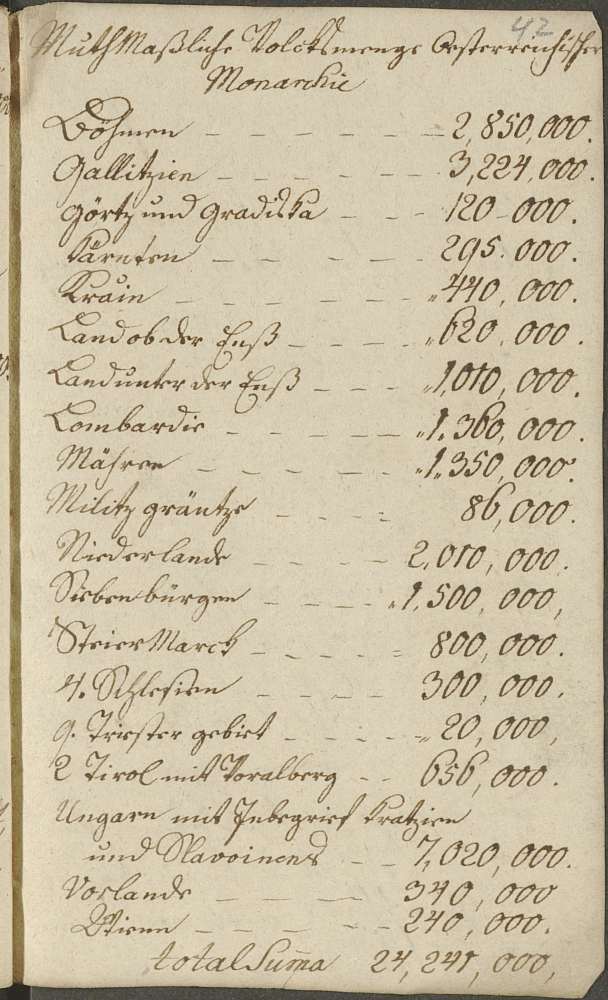 42
MuthMaßliche Volcksmenge Oesterreichischer
Monarchie
Böhmen - - - - - - 2,850,000.
Gallitzien - - - - - 3,224,000.
Görtz und Gradiska - - - 120-000.
Kärnten - - - - - 295.000.
Krain - - - - - - 440,000.
Land ob der Enß - - - - 620,000.
Land unter der Enß - - - 1,010,000.
Lombardie - - - - - 1.360,000.
Mähren - - - - - - 1,350,000.
Militz gräntze - - - 86,000.
Niederlande - - - - 2,010,000.
Siebenbürgen - - - - 1,500,000,
SteierMarck - - - - 800,000.
4. Schlesien - - - - 300,000.
9. Triester gebiet - - - - 20,000,
2 Tirol mit Voralberg - - 656,000.
Ungarn mit Inbegrief Kratzien
und Slavoinens - - 7,020,000.
Vorlande - - - - 340,000
Wienn - - - - - 240,000.
total Suma 24,241,000,